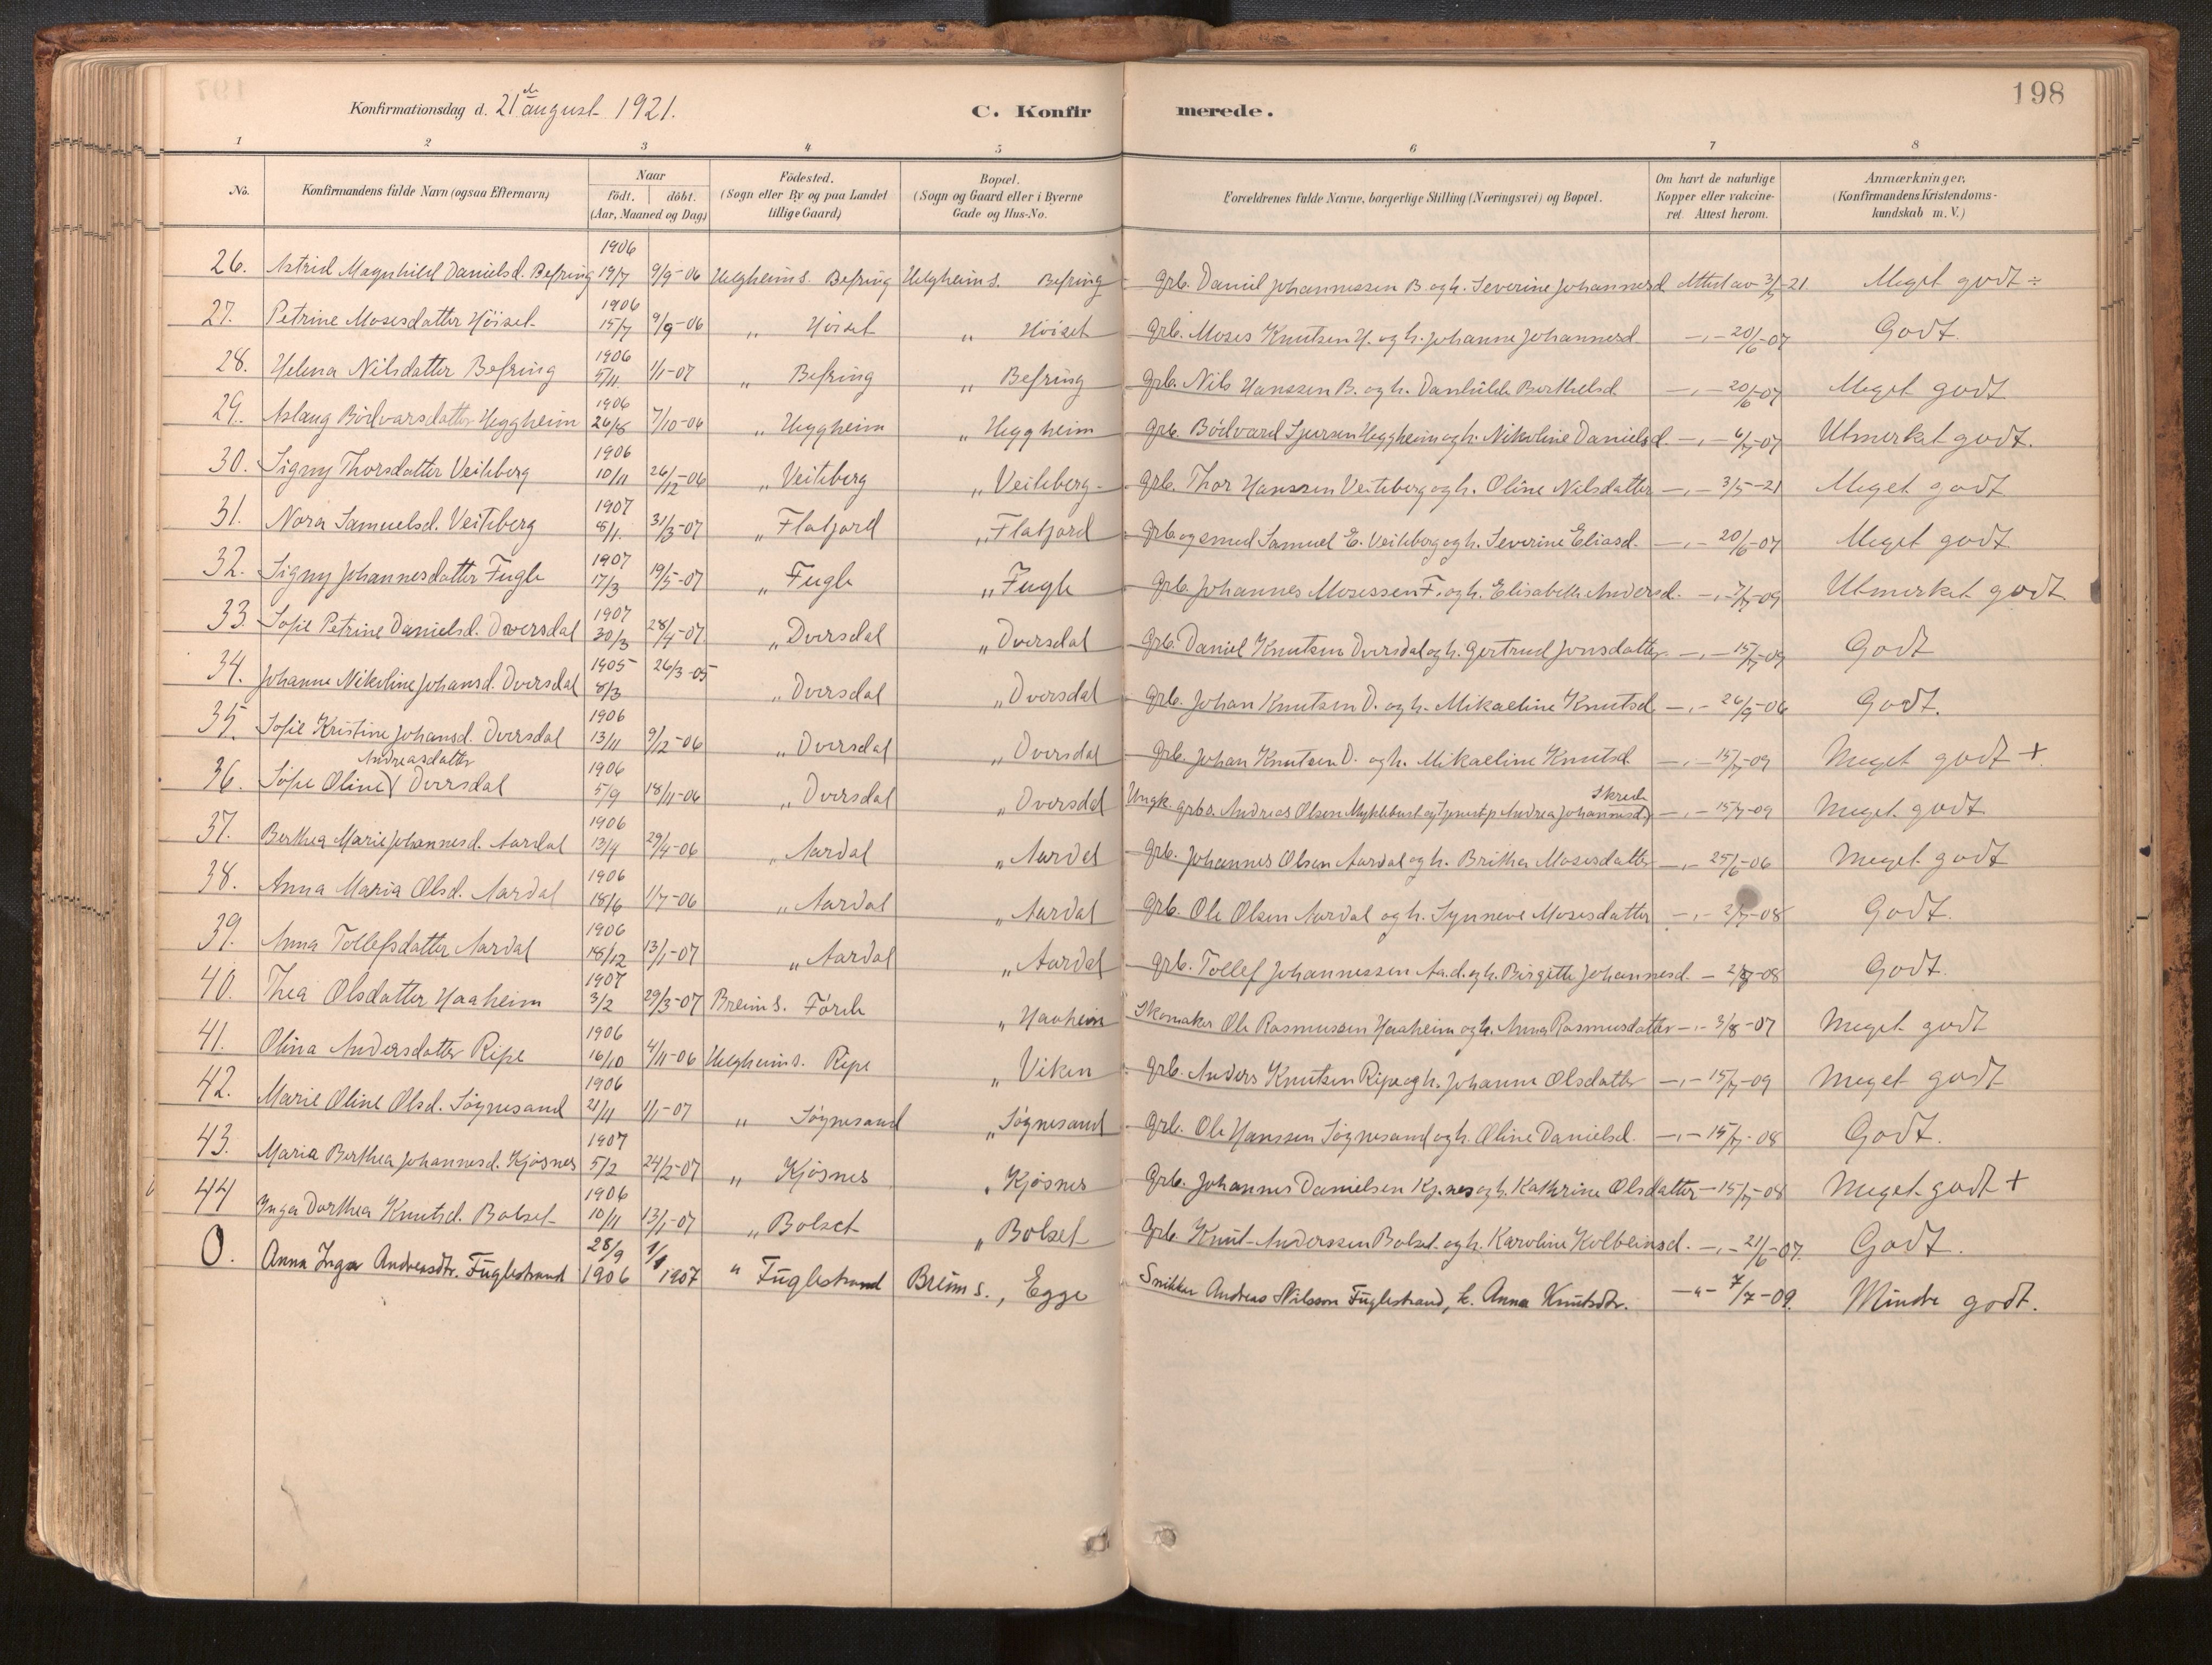 198
Konfirmationsdag d. 21de august 1921. C. Konfirmerede.
1 2 3 4 5 6 7 8
No. Konfirmandens fulde Navn (ogsaa Efternavn) Naar födt. döbt. (Aar, Maaned og Dag) Födested. (Sogn eller By og paa Landet tillige Gaard) Bopæl. (Sogn og Gaard eller i Byerne Gade og Hus-No. Forældrenes fulde Navne, borgerlige Stilling (Næringsvei) og Bopæl. Om havt de naturlige Kopper eller vakcineret. Attest herom. Anmærkninger. (Konfirmandens Kristendomskundskab m. V.)
26. Astrid Magnhild Danielsd. Befring 1906 19/7 9/9-06 Helgheim s. Befring Helgheim s. Befring Grb. Daniel Johannessen B. og h. Severine Johannesd. Attest av 3/5-21. Meget godt ÷
27. Petrine Mosesdatter Höiset 1906 15/7 9/9-06 " Höiset " Höiset Grb. Moses Knutsen H. og h. Johanne Johannesd. -"- 20/6-07 Godt.
28. Helena Nilsdatter Befring 1906 5/11 1/1-07 " Befring " Befring Grb. Nils Hanssen B. og h. Danhilde Berthelsd. -"- 20/6-07 Meget godt
29. Aslaug Bödvarsdatter Heggheim 1906 26/8 7/10-06 " Heggheim " Heggheim Grb. Bödvard Sjursen Heggheim og h. Nikoline Danielsd. -"- 6/7-07 Utmerket godt.
30. Signy Thorsdatter Veiteberg 1906 10/11 26/12-06 " Veiteberg " Veiteberg Grb. Thor Hanssen Veiteberg og h. Oline Nilsdatter -"- 3/5-21 Meget godt
31. Nora Samuelsd. Veiteberg 1907 8/1 31/3-07 " Flatjord " Flatjord Grb. og smed Samuel E. Veiteberg og h. Severine Eliasd. -"- 20/6-07 Meget godt
32. Signy Johannesdatter Fugle 1907 17/3 19/5-07 " Fugle " Fugle Grb. Johannes Mosessen F. og h. Elisabeth Andersd. -"- 7/7-09 Utmerket godt
33. Sofie Petrine Danielsd. Dversdal 1907 30/3 28/4-07 " Dversdal " Dversdal Grb. Daniel Knutsen Dversdal og h. Gertrud Jonsdatter -"- 15/7-09 Godt
34. Johanne Nikoline Johansd. Dversdal 1905 8/3 26/3-05 " Dversdal " Dversdal Grb. Johan Knutsen D. og h. Mikaeline Knutsd. -"- 26/9-06 Godt.
35. Sofie Kristine Johansd. Dversdal 1906 13/11 9/12-06 " Dversdal " Dversdal Grb. Johan Knutsen D. og h. Mikaeline Knutsd -"- 15/7-09 Meget godt +
36. Sofie Oline Andreasdatter Dversdal 1906 5/9 18/11-06 " Dversdal " Dversdal Ungk. grbs. Andreas Olsen Myklebust og tjenestp. Andrea Johannesd. Skrede -"- 15/7-09 Meget godt
37. Berthea Marie Johannesd. Aardal 1906 13/4 29/4-06 " Aardal " Aardal Grb. Johannes Olsen Aardal og h. Brithea Mosesdatter -"- 25/6-06 Meget godt
38. Anna Maria Olsd. Aardal 1906 18/6 1/7-06 " Aardal " Aardal Grb. Ole Olsen Aardal og h. Synneve Mosesdatter -"- 2/7-08 Godt.
39. Anna Tollefsdatter Aardal 1906 18/12 13/1-07 " Aardal " Aardal Grb. Tollef Johannessen Aa.d. og h. Birgitte Johannesd. - 2/7-08 Godt.
40. Thea Olsdatter Haaheim 1907 3/2 29/3-07 Breim s. Förde " Haaheim Skomaker Ole Rasmussen Haaheim og h. Anna Rasmusdatter -"- 3/8-07 Meget godt
41. Olina Andersdatter Ripe 1906 16/10 4/11-06 Helgheim s. Ripe " Viken Grb. Anders Knutsen Ripe og h. Johanne Olsdatter -"- 15/7-09 Meget godt
42. Marie Oline Olsd. Sögnesand 1906 21/11 1/1-07 " Sögnesand " Sögnesand Grb. Ole Hanssen Sögnesand og h. Oline Danielsd. -"- 15/7-08 Godt.
43. Maria Berthea Johannesd. Kjösnes 1907 5/2 24/2-07 " Kjösnes " Kjösnes Grb. Johannes Danielsen Kj.nes og h. Kathrine Olsdatter - 15/7-08 Meget godt +
44 Inga Dorthea Knutsd. Bolset 1906 10/11 13/1-07 " Bolset " Bolset Grb. Knut Anderssen Bolset og h. Karoline Kolbeinsd. -"- 21/6-07. Godt.
0. Anna Inga Andreasdtr. Fuglestrand 28/9 1906 1/1 1907 " Fuglestrand Breim s., Egge Snikker Andreas Nilsson Fuglestrand, h. Anna Knutsdtr. -"- 7/7-09. Mindre godt.